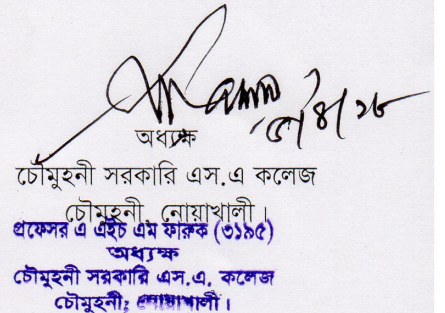 অধ্যক্ষ
চৌমুহনী সরকারি এস.এ কলেজ
চৌমুহনী, নোয়াখালী।
প্রফেসর এ এইচ এম ফারুক (৩১৯৫)
অধ্যক্ষ
চৌমুহনী সরকারি এস.এ. কলেজ
চৌমুহনী, নোয়াখালী।